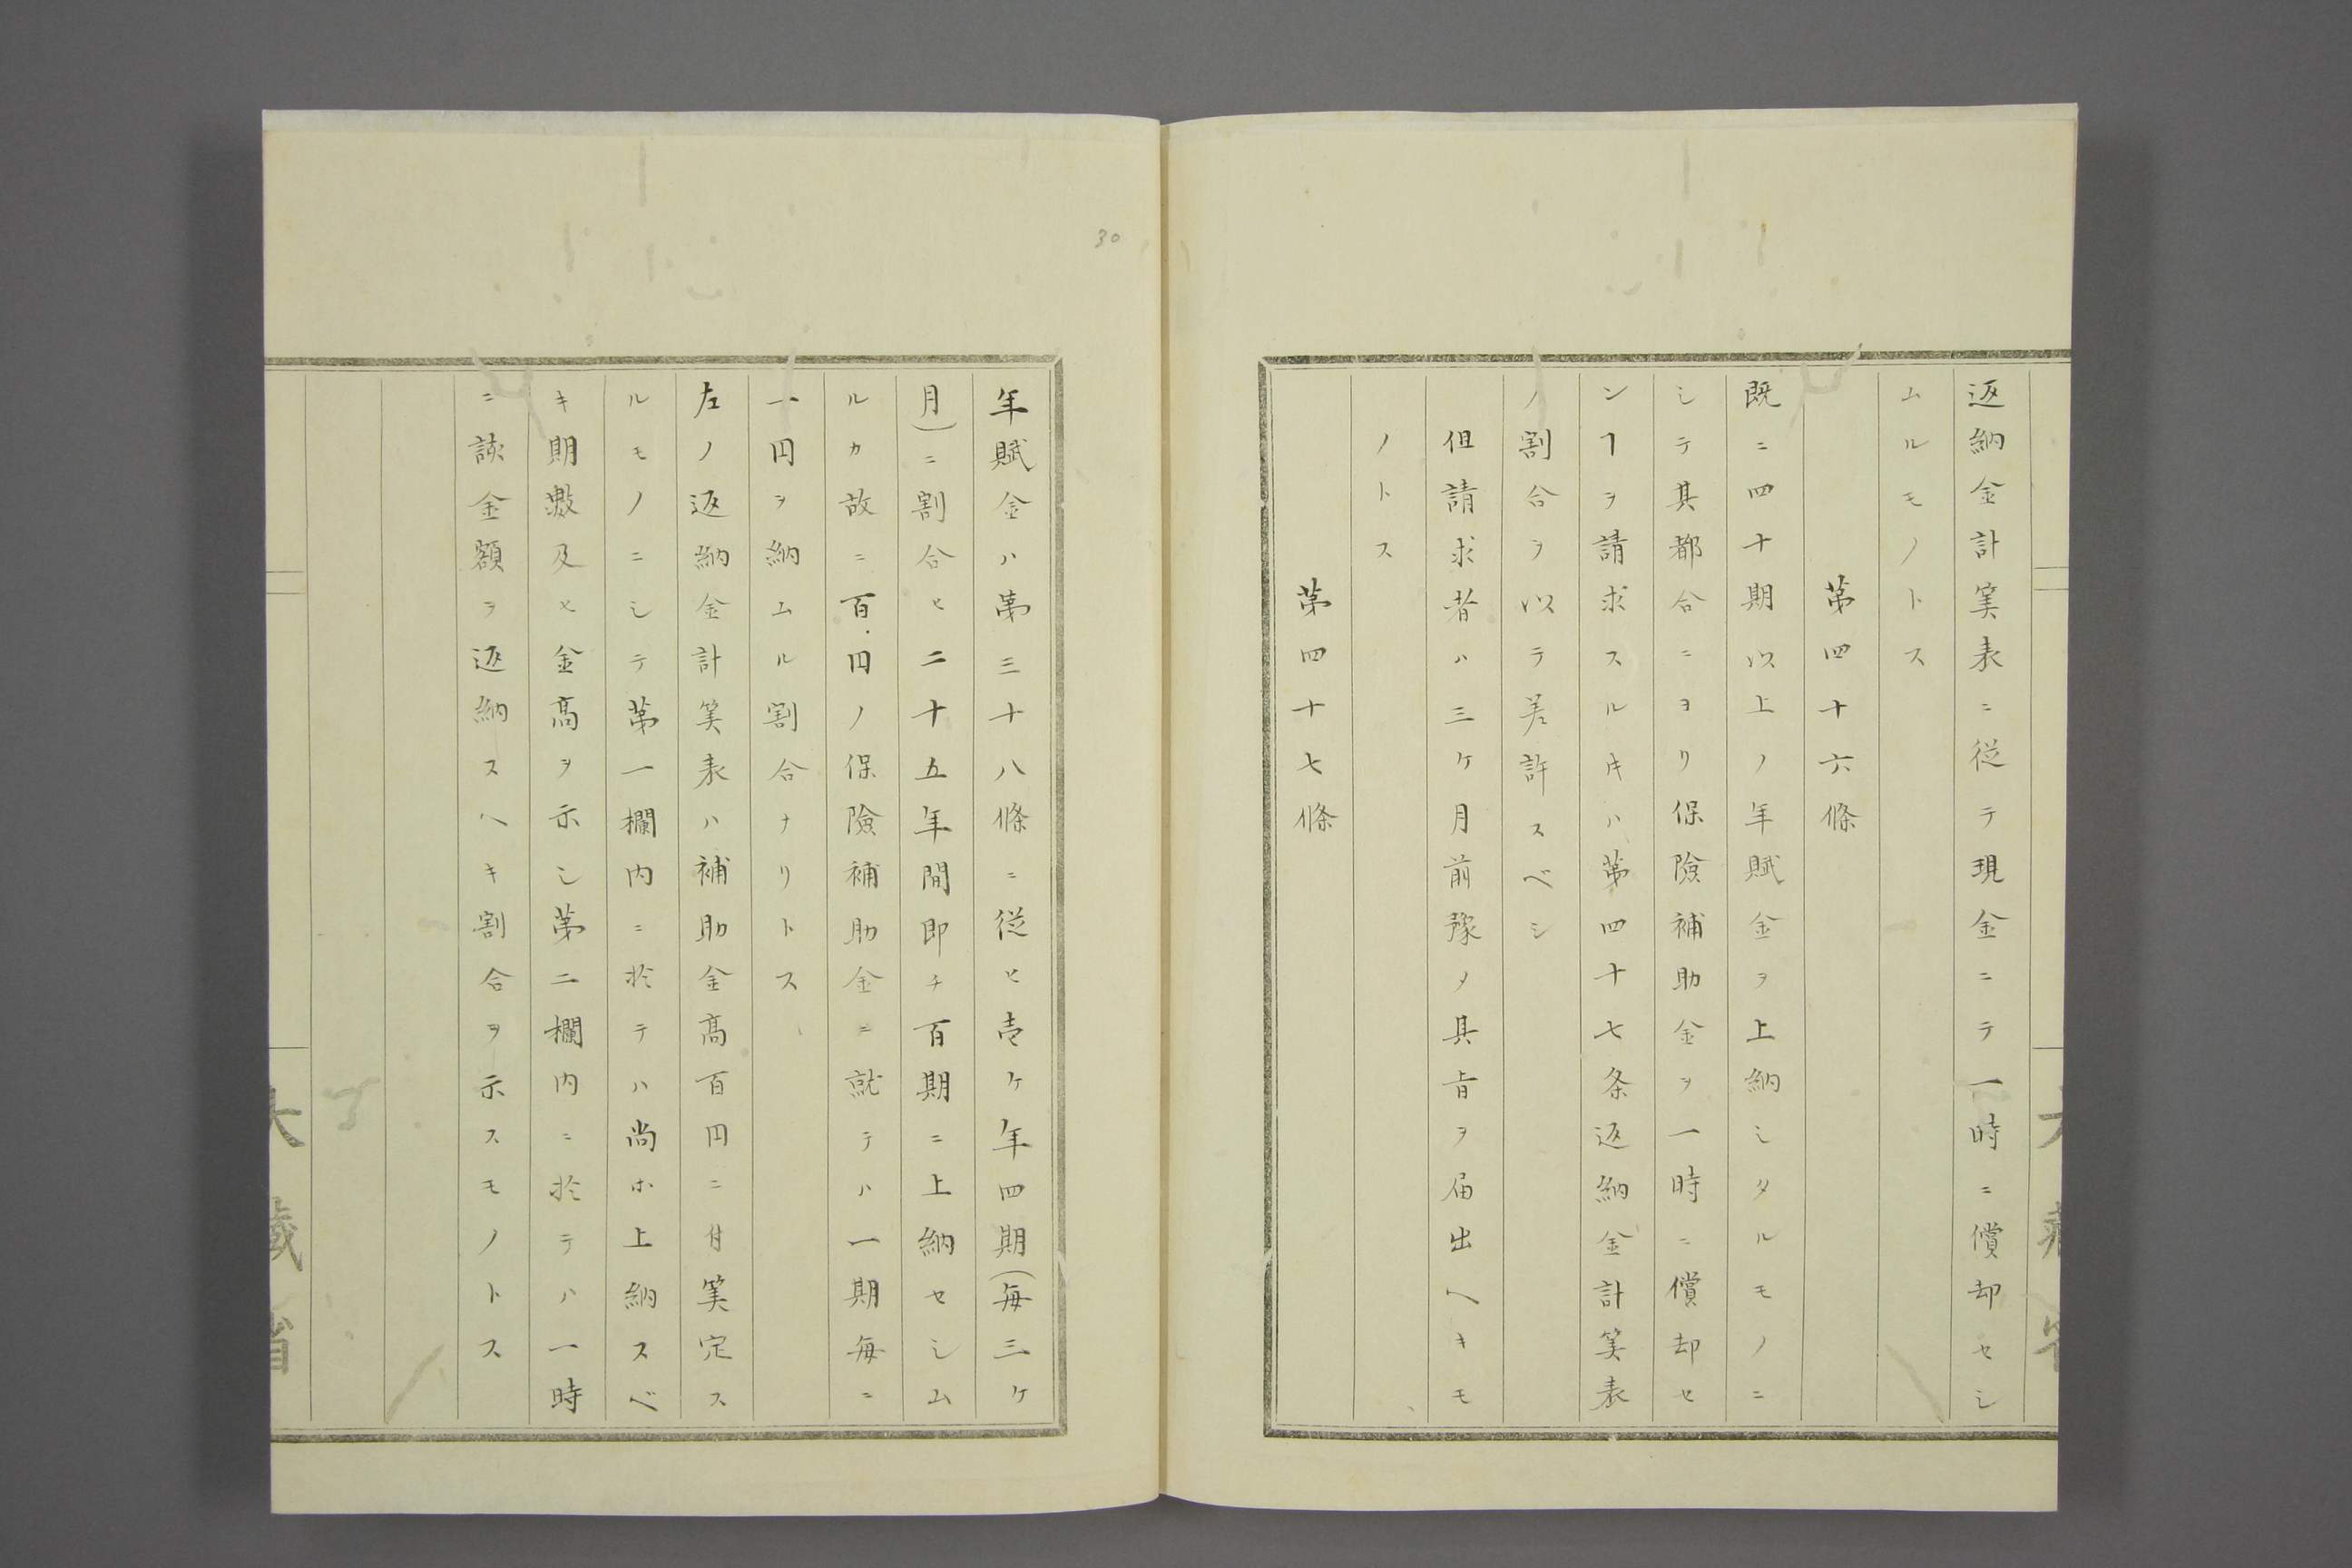 返納金計算表ニ從テ現金ニテ一時ニ償却セシ
ムルモノトス
第四十六條
既ニ四十期以上ノ年賦金ヲ上納シタルモノニ
シテ其都合ニヨリ保險補助金ヲ一時ニ償却セ
ンヿヲ請求スルキハ第四十七条返納金計算表
ノ割合ヲ以テ差許スベシ
但請求者ハ三ケ月前豫メ其旨ヲ届出ヘキモ
ノトス
第四十七條
30
年賦金ハ第三十八條ニ從ヒ壱ケ年四期(毎三ケ
月)ニ割合ヒ二十五年間即チ百期ニ上納セシム
ルカ故ニ百円ノ保險補助金ニ就テハ一期毎ニ
一円ヲ納ムル割合ナリトス
左ノ返納金計算表ハ補助金高百円ニ付算定ス
ルモノニシテ第一欄内ニ於テハ尚ホ上納スベ
キ期数及ヒ金高ヲ示シ第二欄内ニ於テハ一時
ニ該金額ヲ返納スヘキ割合ヲ示スモノトス
大藏省